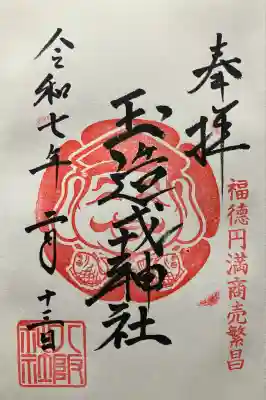 奉拝
福徳円満商売繁昌
玉造戎神社
令和七年二月十三日
八阪神社